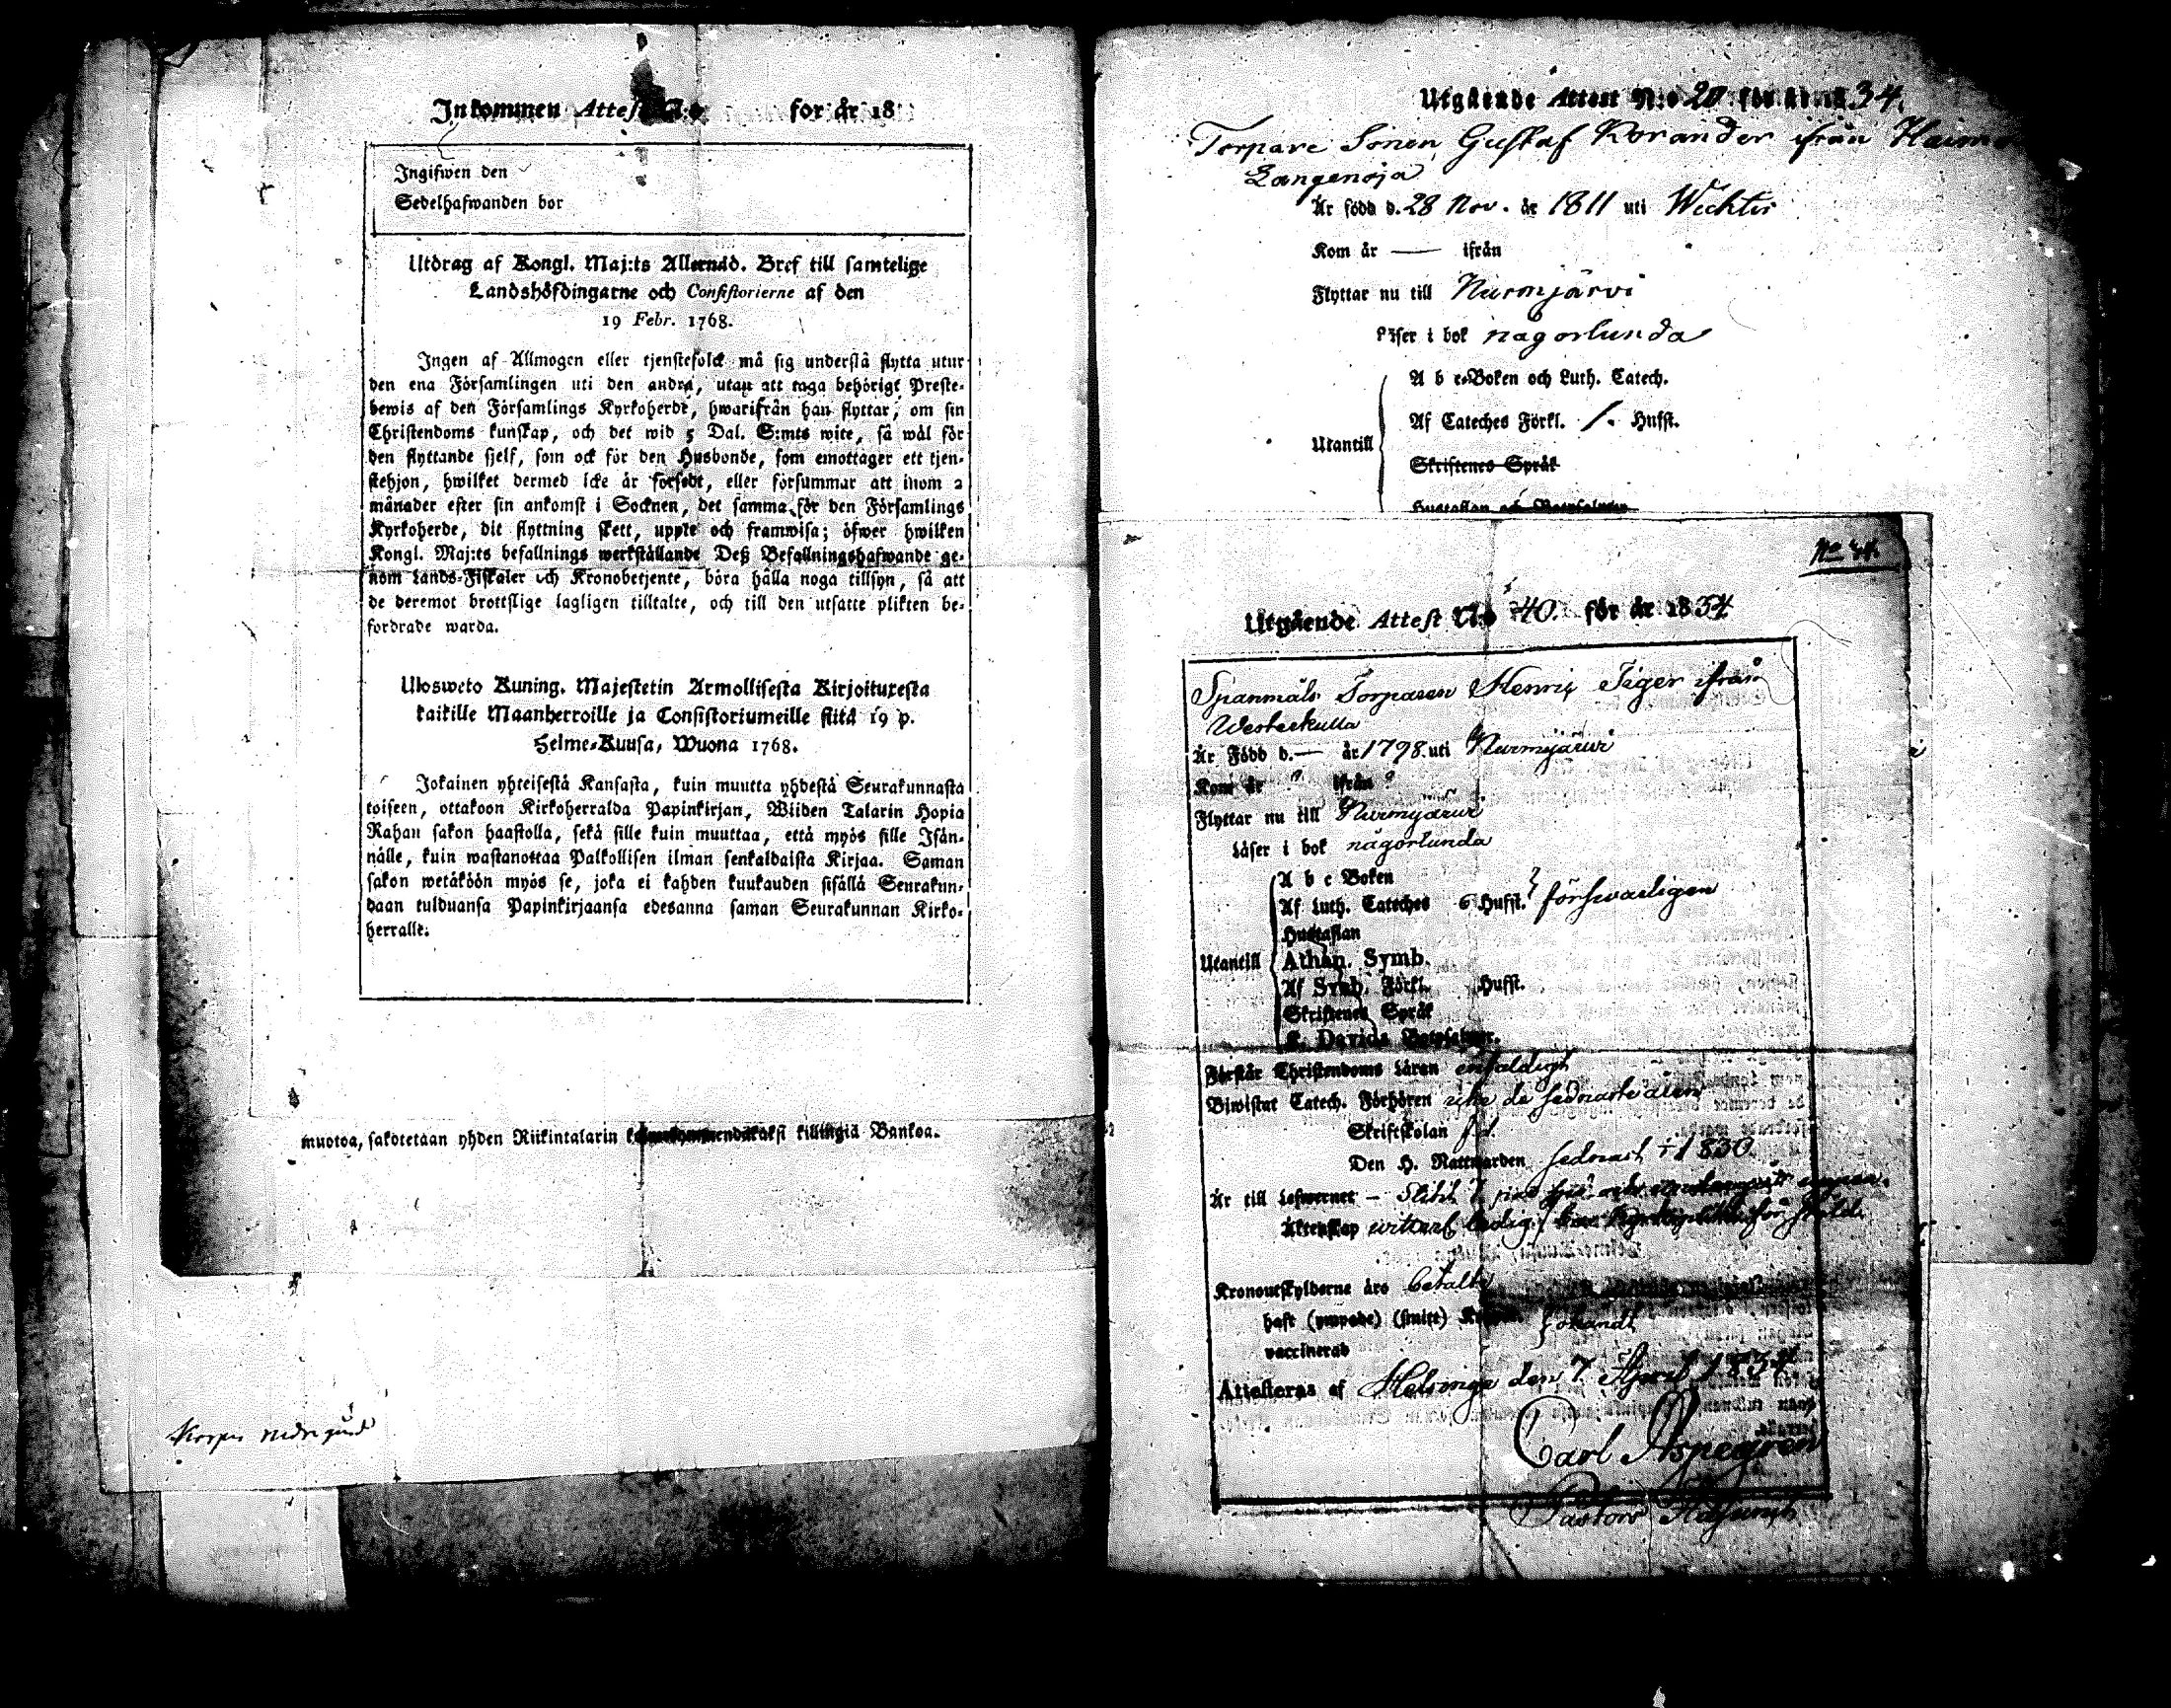 Inkommen Attest N:o for år 18
Ingifwen den
Sedelhafwanden bor
Utdrag af Kongl. Maj:ts Allernåd. Bref till samtelige
Landshöfdingarne och Consistorierne af den
19 Febr. 1768.
Ingen af Allmogen eller tjenstefolck må sig understå flytta utur
den ena Församlingen uti den andra, utan att taga behörigt Preste-
bewis af den Församlings Kyrkoherde, hwarifrån han flyttar, om sin
Christendoms kunskap, och det wid 5 Dal. S:mts wite, så wäl för
den flyttande sjelf, som ock för den Husbonde, som emottager ett tjen-
stehjon, hwilket dermed icke är försedt, eller försummar att inom 2
månader efter sin ankomst i Socknen, det samma för den Församlings
Kyrkoherde, dit flyttning skett, uppte och framwisa; öfwer hwilken
Kongl. Maj:ts befallnings werkställande Deß Befallningshafwande ge-
nom Lands-Fiskaler och Kronobetjente, böra hålla noga tillsyn, så att
de deremot brottslige lagligen tilltalte, och till den utsatte plikten be-
fordrade warda.
Ulosweto Kuning. Majestetin Armollisesta Kirjoituxesta
kaikille Maanherroille ja Consistoriumeille siitä 19 p.
Helme-Kuusa, Wuona 1768.
Jokainen yhteisestä Kansasta, kuin muutta yhdestä Seurakunnasta
toiseen, ottakoon Kirkoherralda Papinkirjan, Wiiden Talarin Hopia
Rahan sakon haastolla, sekä sille kuin muuttaa, että myös sille Isän-
nälle, kuin wastanottaa Palkollisen ilman senkaldaista Kirjaa. Saman
sakon wetäköön myös se, joka ei kahden kuukauden sisällä Seurakun-
daan tulduansa Papinkirjaansa edesanna saman Seurakunnan Kirko-
herralle.
muotoa, sakotetaan yhden Riikintalarin killingiä Bankoa.
Utgående Attest N:o 20 för år 1834.
Torpare Sonen Gustaf Korander ifrån
Långenoja
Är född d. 28 Nov. år 1811 uti Wichtis
Kom år — ifrån
Flyttar nu till Nurmjärvi
Läser i bok någorlunda
A b c-Boken och Luth. Catech.
Af Cateches Förkl. 1. Hufst.
Utantill
Skriftenes Språk
Hustaflan och Botpsalmer
No 44.
Utgående Attest N:o 40. för år 1834
Spanmåls Torparen Henric Tiger ifrån
Westerkulla
Är Född d. — år 1798 uti Nurmijärvi
Kom år ? ifrån ?
Flyttar nu till Nurmijärvi
Läser i bok någorlunda
A b c Boken
Af Luth. Cateches 6 Hufst. försvarligen
Hustaflan
Utantill Athan. Symb.
Af Symb. Förkl. Hufst.
Skriftenes Språk
K. Davids Botpsalmer.
Förstår Christendoms Läran enfaldigt
Biwistat Catech. Förhören icke de sednaste åren
Skriftskolan
Den H. Nattwarden sednast 1830
Är till Lefwernet –
Äktenskap ledig
Kronoutskylderne äro betalte
haft (ympade) (smitt) Koppor. okändt
vaccinerad
Attesteras af Helsinge den 7 April 1834
Carl Aspegren
Pastors Adjunct